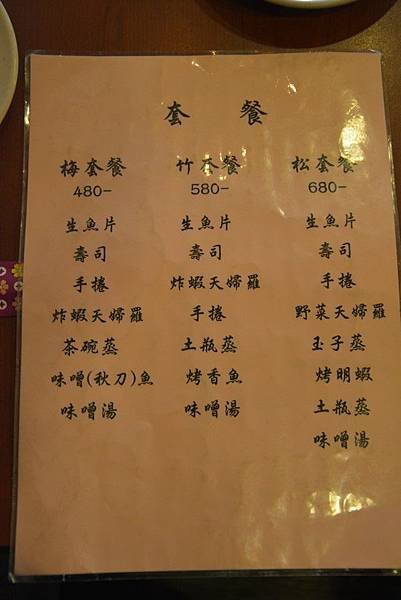 套 餐
梅套餐 竹套餐 松套餐
480- 580- 680-
生魚片 生魚片 生魚片
壽司 壽司 壽司
手捲 炸蝦天婦羅 手捲
炸蝦天婦羅 手捲 野菜天婦羅
茶碗蒸 土瓶蒸 玉子蒸
味噌(秋刀)魚 烤香魚 烤明蝦
味噌湯 味噌湯 土瓶蒸
味噌湯